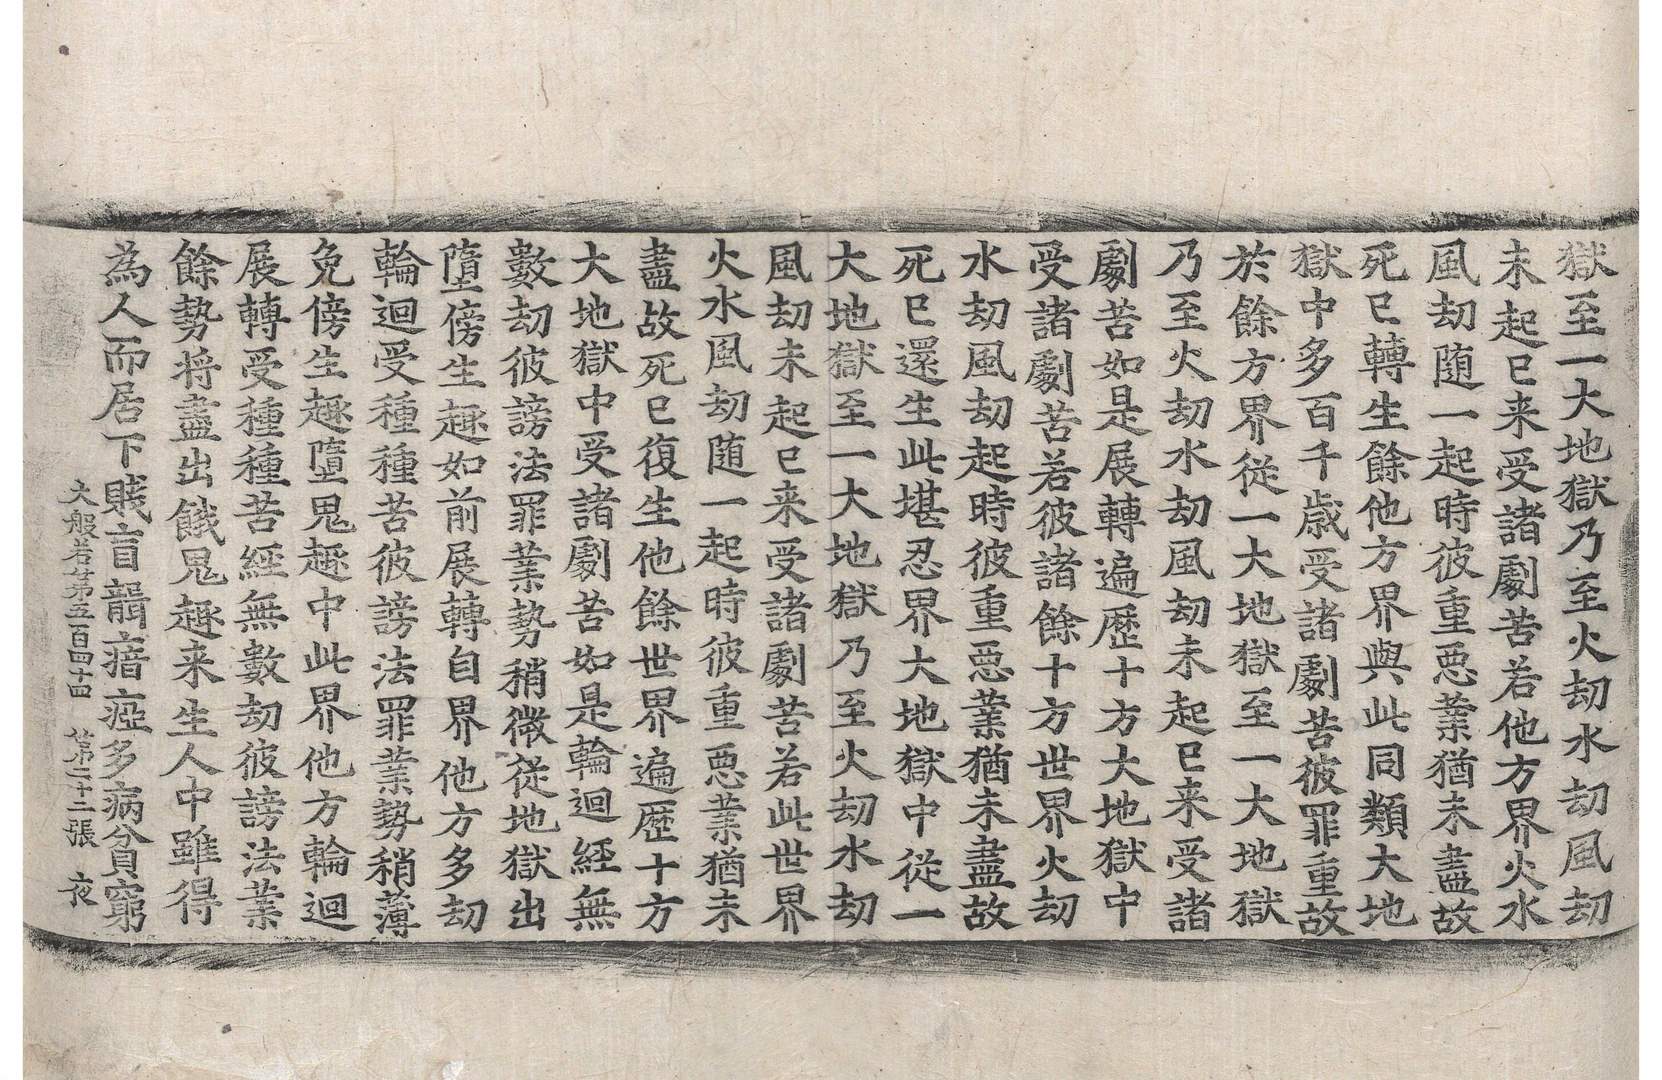 獄至一大地獄乃至火劫水劫風劫
未起已来受諸劇苦若他方界火水
風劫随一起時彼重惡業猶未盡故
死已轉生餘他方界與此同類大地
獄中多百千歲受諸劇苦彼罪重故
於餘方界從一大地獄至一大地獄
乃至火劫水劫風劫未起已来受諸
劇苦如是展轉遍歷十方大地獄中
受諸劇苦若彼諸餘十方世界火劫
水劫風劫起時彼重惡業猶未盡故
死已還生此堪忍界大地獄中從一
大地獄至一大地獄乃至火劫水劫
風劫未起已来受諸劇苦若此世界
火水風劫随一起時彼重惡業猶未
盡故死已復生他餘世界遍歷十方
大地獄中受諸劇苦如是輪迴經無
數劫彼謗法罪業勢稍微從地獄出
墮傍生趣如前展轉自界他方多劫
輪迴受種種苦彼謗法罪業勢稍薄
免傍生趣墮鬼趣中此界他方輪迴
展轉受種種苦經無數劫彼謗法業
餘勢将盡出餓鬼趣来生人中雖得
為人而居下賤盲聾瘖瘂多病貧窮
大般若第五百四十四 第二十二張 夜